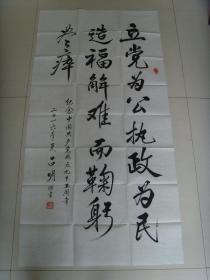 立党为公执政为民
造福解难而鞠躬
尽瘁
纪念中国共产党成立九十五周年
二〇一六年吴品明